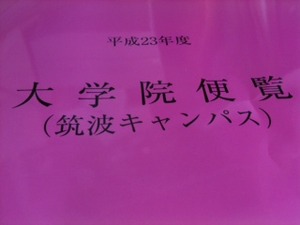 平成23年度
大学院便覧
(筑波キャンパス)